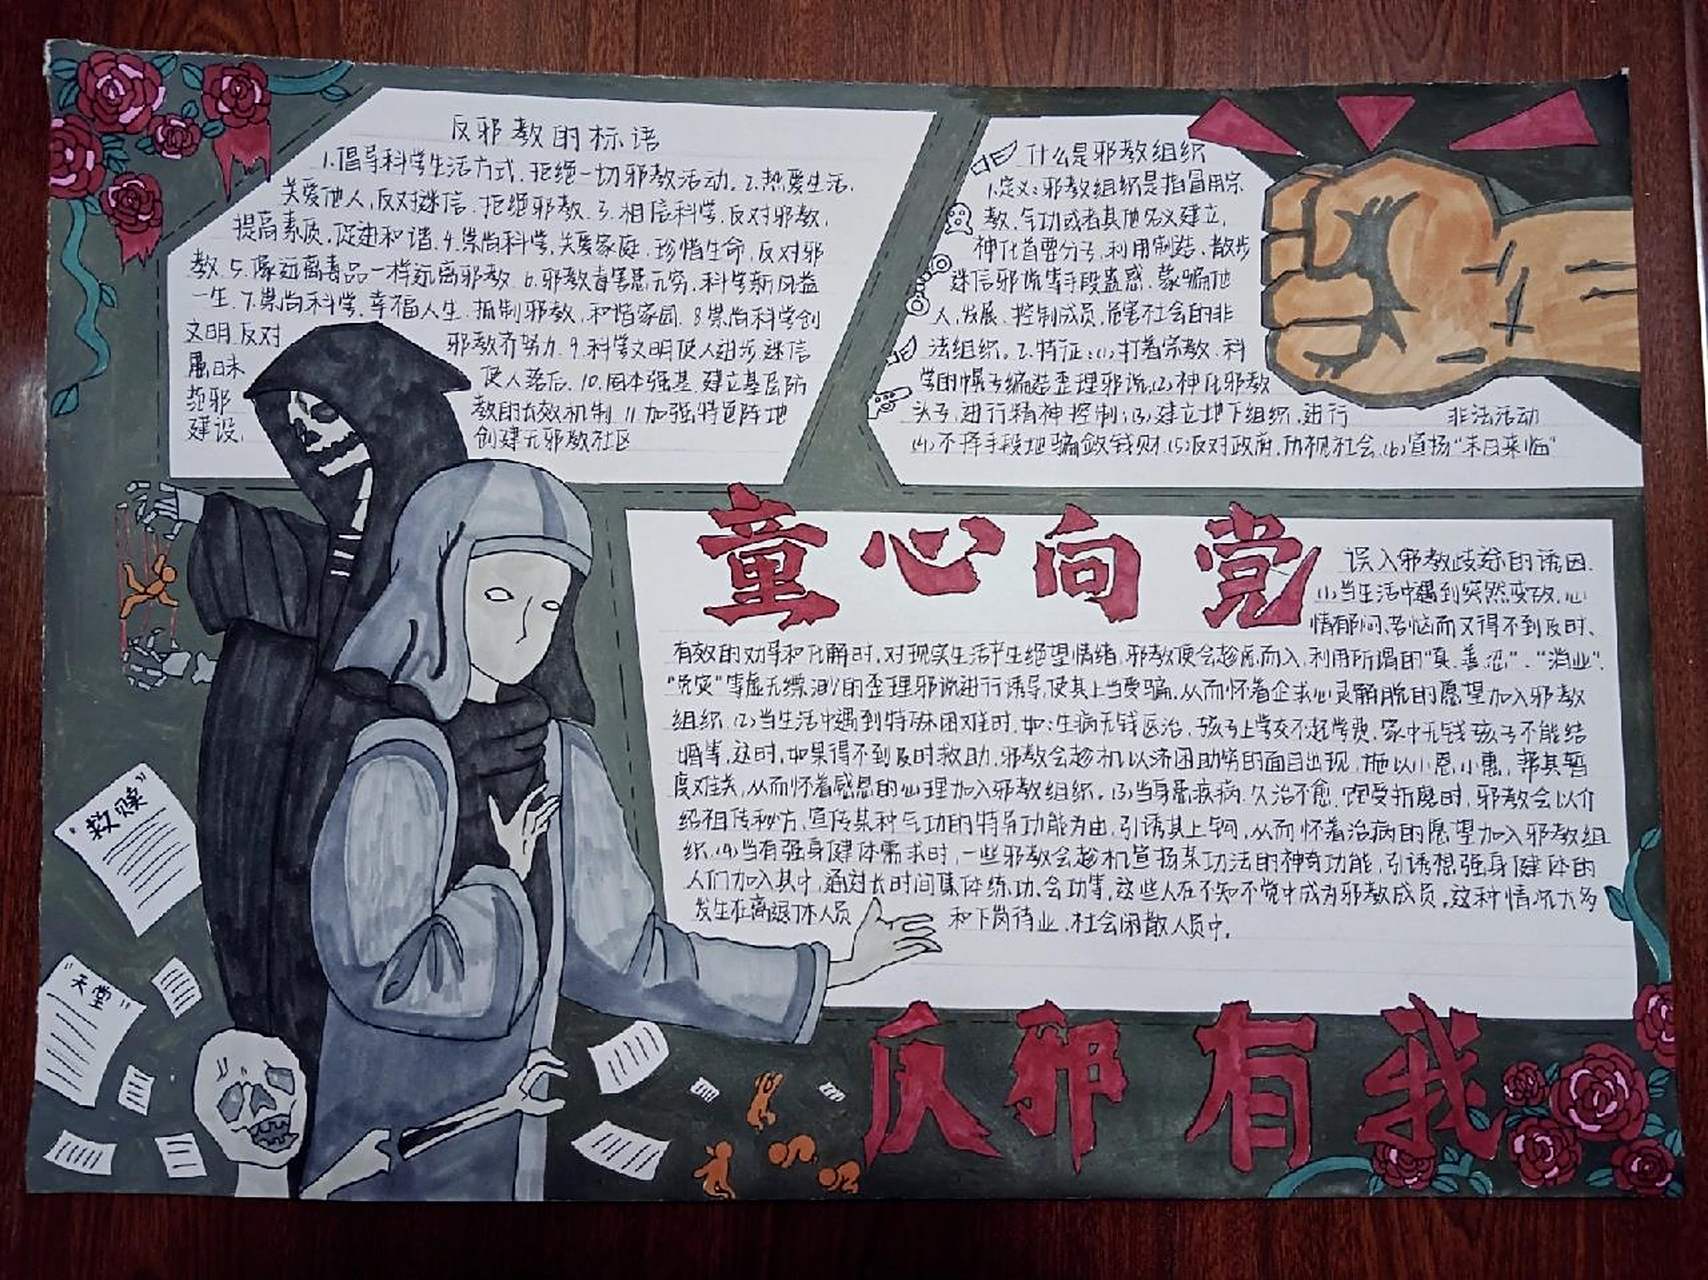 反邪教的标语
1.倡导科学生活方式、拒绝一切邪教活动。2.热爱生活、
关爱他人,反对迷信、拒绝邪教.3.相信科学、反对邪教,
提高素质,促进和谐.4.崇尚科学,关爱家庭,珍惜生命,反对邪
教.5.像远离毒品一样远离邪教.6.邪教毒害患无穷,科学新风益
一生.7.崇尚科学,幸福人生,抵制邪教,和谐家园.8.崇尚科学创
文明,反对 邪教齐努力.9.科学文明使人进步,迷信
愚昧 使人落后.10.固本强基,建立基层防
范邪 教的长效机制.11.加强特色阵地
建设, 创建无邪教社区
什么是邪教组织
1.定义:邪教组织是指冒用宗
教、气功或者其他名义建立,
神化首要分子,利用制造、散步
迷信邪说等手段蛊惑、蒙骗他
人,发展、控制成员,危害社会的非
法组织。2.特征:(1)打着宗教、科
学的幌子编造歪理邪说;(2)神化邪教
头子,进行精神控制;(3)建立地下组织,进行 非法活动
(4)不择手段地骗敛钱财.(5)反对政府,仇视社会.(6)宣扬“末日来临”
童心向党
误入邪教歧途的诱因.
(1)当生活中遇到突然变故,心
情郁闷、苦恼而又得不到及时、
有效的劝导和化解时,对现实生活产生绝望情绪,邪教便会趁虚而入,利用所谓的“真、善、忍”、“消业”、
“免灾”等虚无缥渺的歪理邪说进行诱导,使其上当受骗,从而怀着企求心灵解脱的愿望加入邪教
组织.(2)当生活中遇到特殊困难时,如:生病无钱医治、孩子上学交不起学费、家中无钱孩子不能结
婚等,这时,如果得不到及时救助,邪教会趁机以济困助穷的面目出现,施以小恩小惠,帮其暂
度难关,从而怀着感恩的心理加入邪教组织。(3)当身患疾病,久治不愈,饱受折磨时,邪教会以介
绍祖传秘方,宣传某种气功的特异功能为由,引诱其上钩,从而怀着治病的愿望加入邪教组
织.(4)当有强身健体需求时,一些邪教会趁机宣扬某功法的神奇功能,引诱想强身健体的
人们加入其中,通过长时间集体练功、会功等,这些人在不知不觉中成为邪教成员,这种情况大多
发生在离退休人员 和下岗待业、社会闲散人员中.
“救赎”
“天堂”
反邪有我